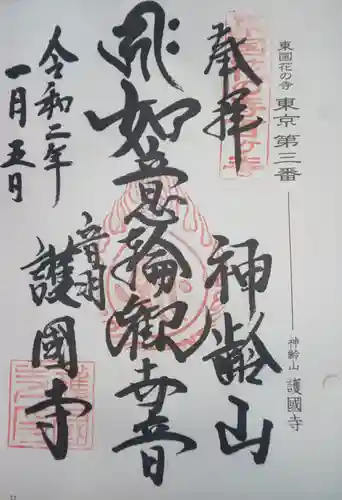 東国花の寺 東京 第三番
神齢山 護國寺
奉拝
神齢山
如意輪観世音
音羽
護國寺
令和二年
一月五日